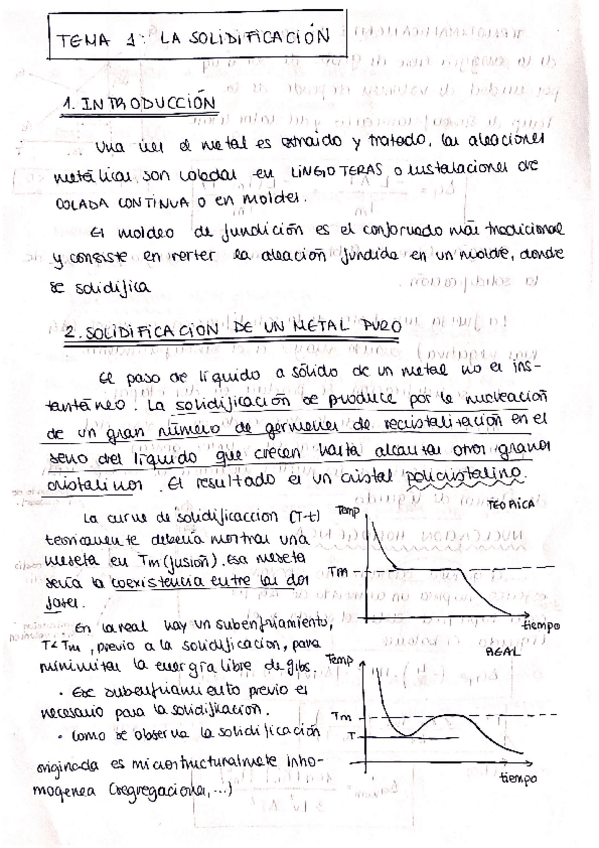 TEMA 1: LA SOLIDIFICACIÓN
1. INTRODUCCIÓN
Una vez el metal es extraido y tratado, las aleaciones
metálicas son coladas en LINGOTERAS o instalaciones de
COLADA CONTINUA o en moldes.
El moldeo de fundición es el conformado más tradicional
y consiste en verter la aleación fundida en un molde, donde
se solidifica
2. SOLIDIFICACION DE UN METAL PURO
El paso de líquido a sólido de un metal no es ins-
tantáneo. La solidificación se produce por la nucleación
de un gran número de germenes de recristalización en el
seno del líquido que crecen hasta alcanzar otros granos
cristalinos. El resultado es un cristal policristalino.
La curva de solidificaccion (T-t)
teoricamente debería mostrar una
meseta en Tm (fusión). Esa meseta
sería la coexistencia entre las dos
fases.
TEÓRICA
Temp
Tm
tiempo
En la real hay un subenfriamiento,
T< Tm, previo a la solidificacion, para
minimizar la energía libre de gibs.
• Ese subenfriamiento previo es
necesario para la solidificacion.
• Como se observa la solidificación
originada es microstructuralmente inho-
mogenea (segregaciones,...)
REAL
Temp
Tm
T
tiempo